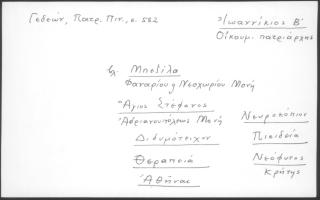 Γεδεών, Πατρ. Πιν., σ. 582
Ἰωαννίκιος Β'
Οἰκουμ. πατριάρχης
βλ. Μπογίλα
Φαναρίου ἢ Νεοχωρίου Μονή
Ἅγιος Στέφανος
Ἀδριανουπόλεως Μονή
Νευροκόπιον
Διδυμότειχον
Πισιδεία
Θεραπειά
Νεόφυτος
Κρήτης
Ἀθῆναι